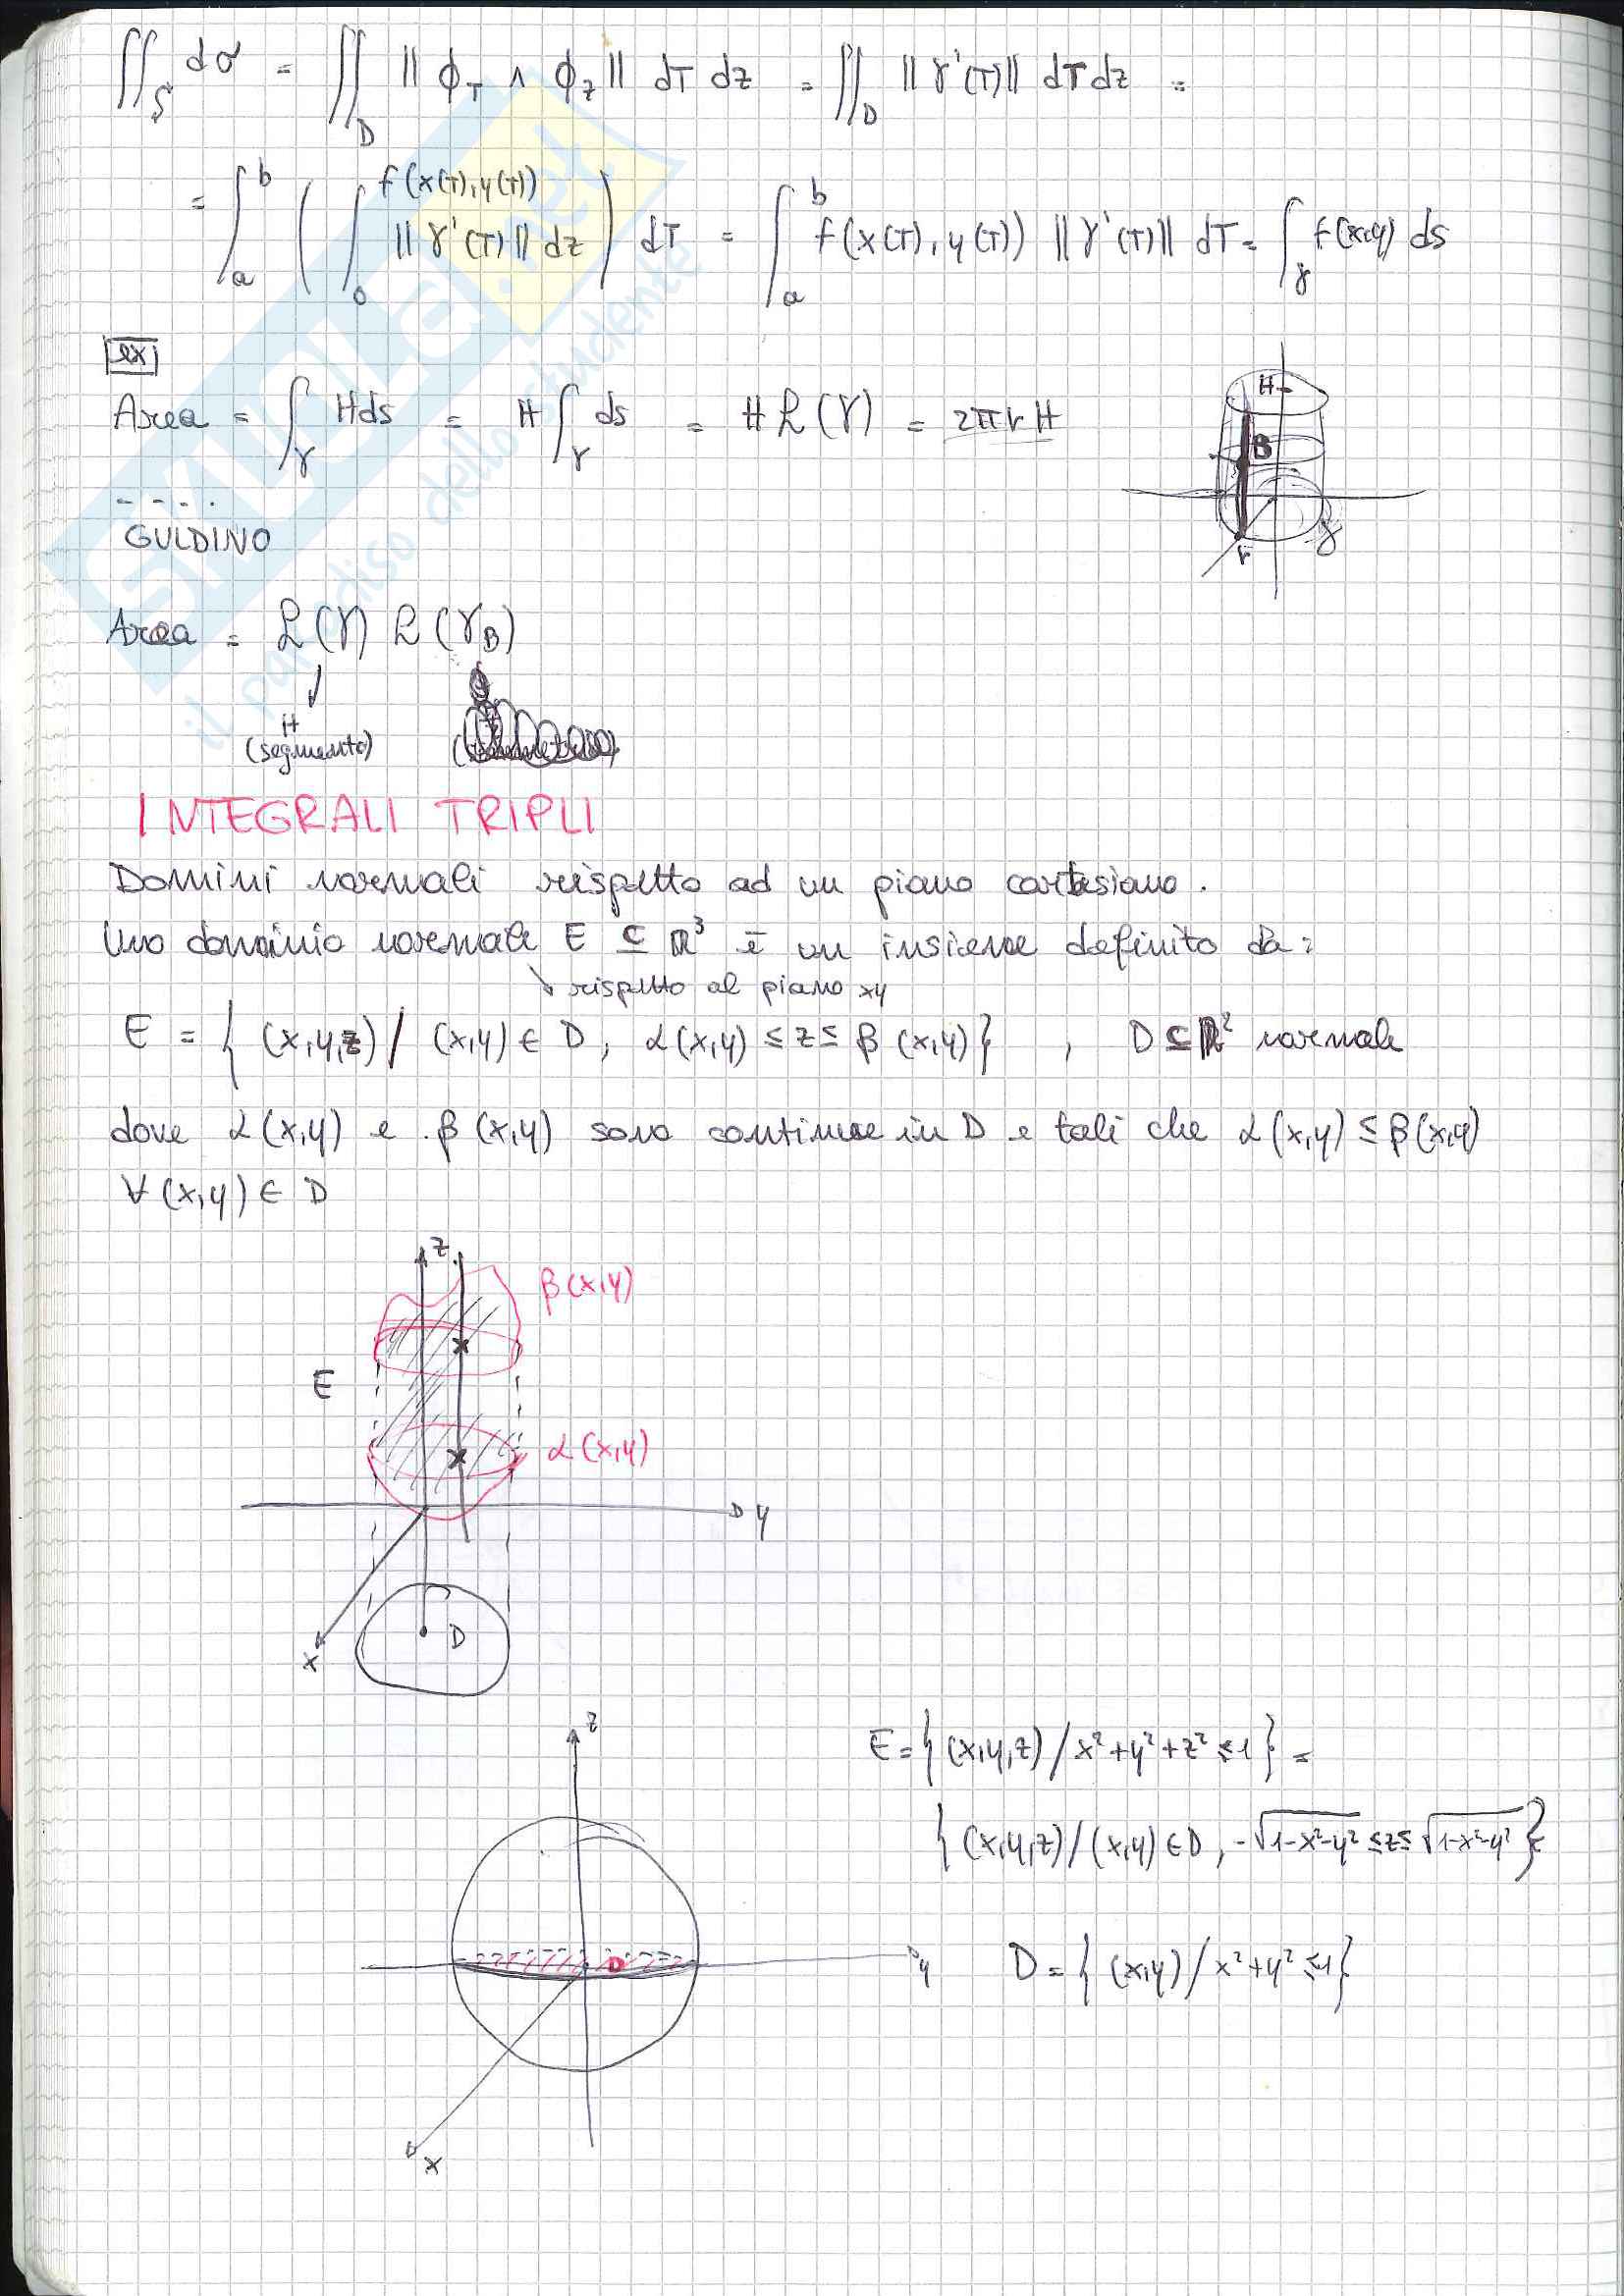 ∬_S dσ = ∬_D ‖ϕ_T ∧ ϕ_z‖ dT dz = ∬_D ‖γ'(T)‖ dT dz =
= ∫_a^b ( ∫_0^{f(x(T),y(T))} ‖γ'(T)‖ dz ) dT = ∫_a^b f(x(T),y(T)) ‖γ'(T)‖ dT = ∫_γ f(x,y) ds
ex
Area = ∫_γ H ds = H ∫_γ ds = H L(γ) = 2πrH
H
B
r
γ
- - . .
GULDINO
Area = L(γ) L(γ_B)
↓
H
(segmento)
INTEGRALI TRIPLI
Domini normali rispetto ad un piano cartesiano.
Uno dominio normale E ⊆ ℝ³ è un insieme definito da:
↘ rispetto al piano xy
E = { (x,y,z) / (x,y) ∈ D, α(x,y) ≤ z ≤ β(x,y) } , D ⊆ ℝ² normale
dove α(x,y) e β(x,y) sono continue in D e tali che α(x,y) ≤ β(x,y)
∀ (x,y) ∈ D
z
β(x,y)
E
α(x,y)
y
D
x
z
E = { (x,y,z) / x²+y²+z² ≤ 1 } =
{ (x,y,z) / (x,y) ∈ D, -√(1-x²-y²) ≤ z ≤ √(1-x²-y²) }
D
y
D = { (x,y) / x²+y² ≤ 1 }
x
SKUOLA.net
il paradiso dello studente